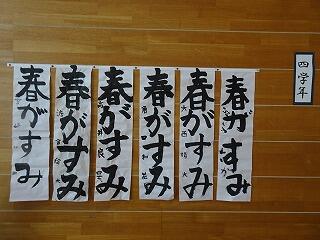 四学年
春がすみ
春がすみ
春がすみ
春がすみ
春がすみ
春がすみ